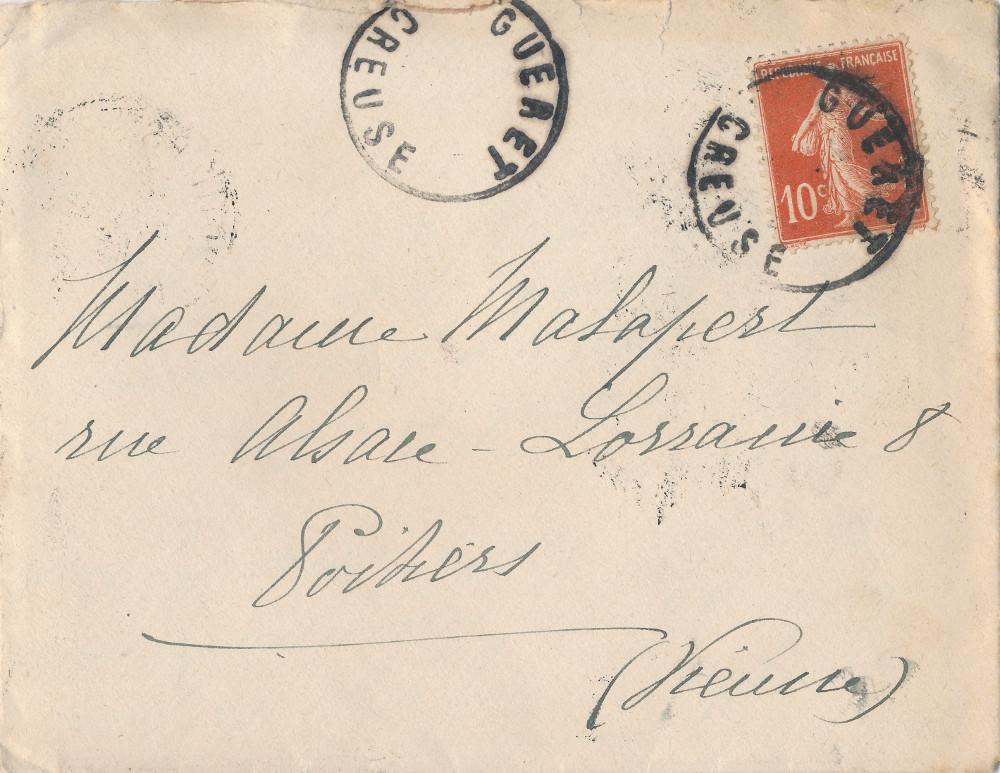 GUERET
CREUSE
REPUBLIQUE FRANÇAISE
10c
GUERET
CREUSE
Madame Malapert
rue Alsace-Lorraine 8
Poitiers
(Vienne)